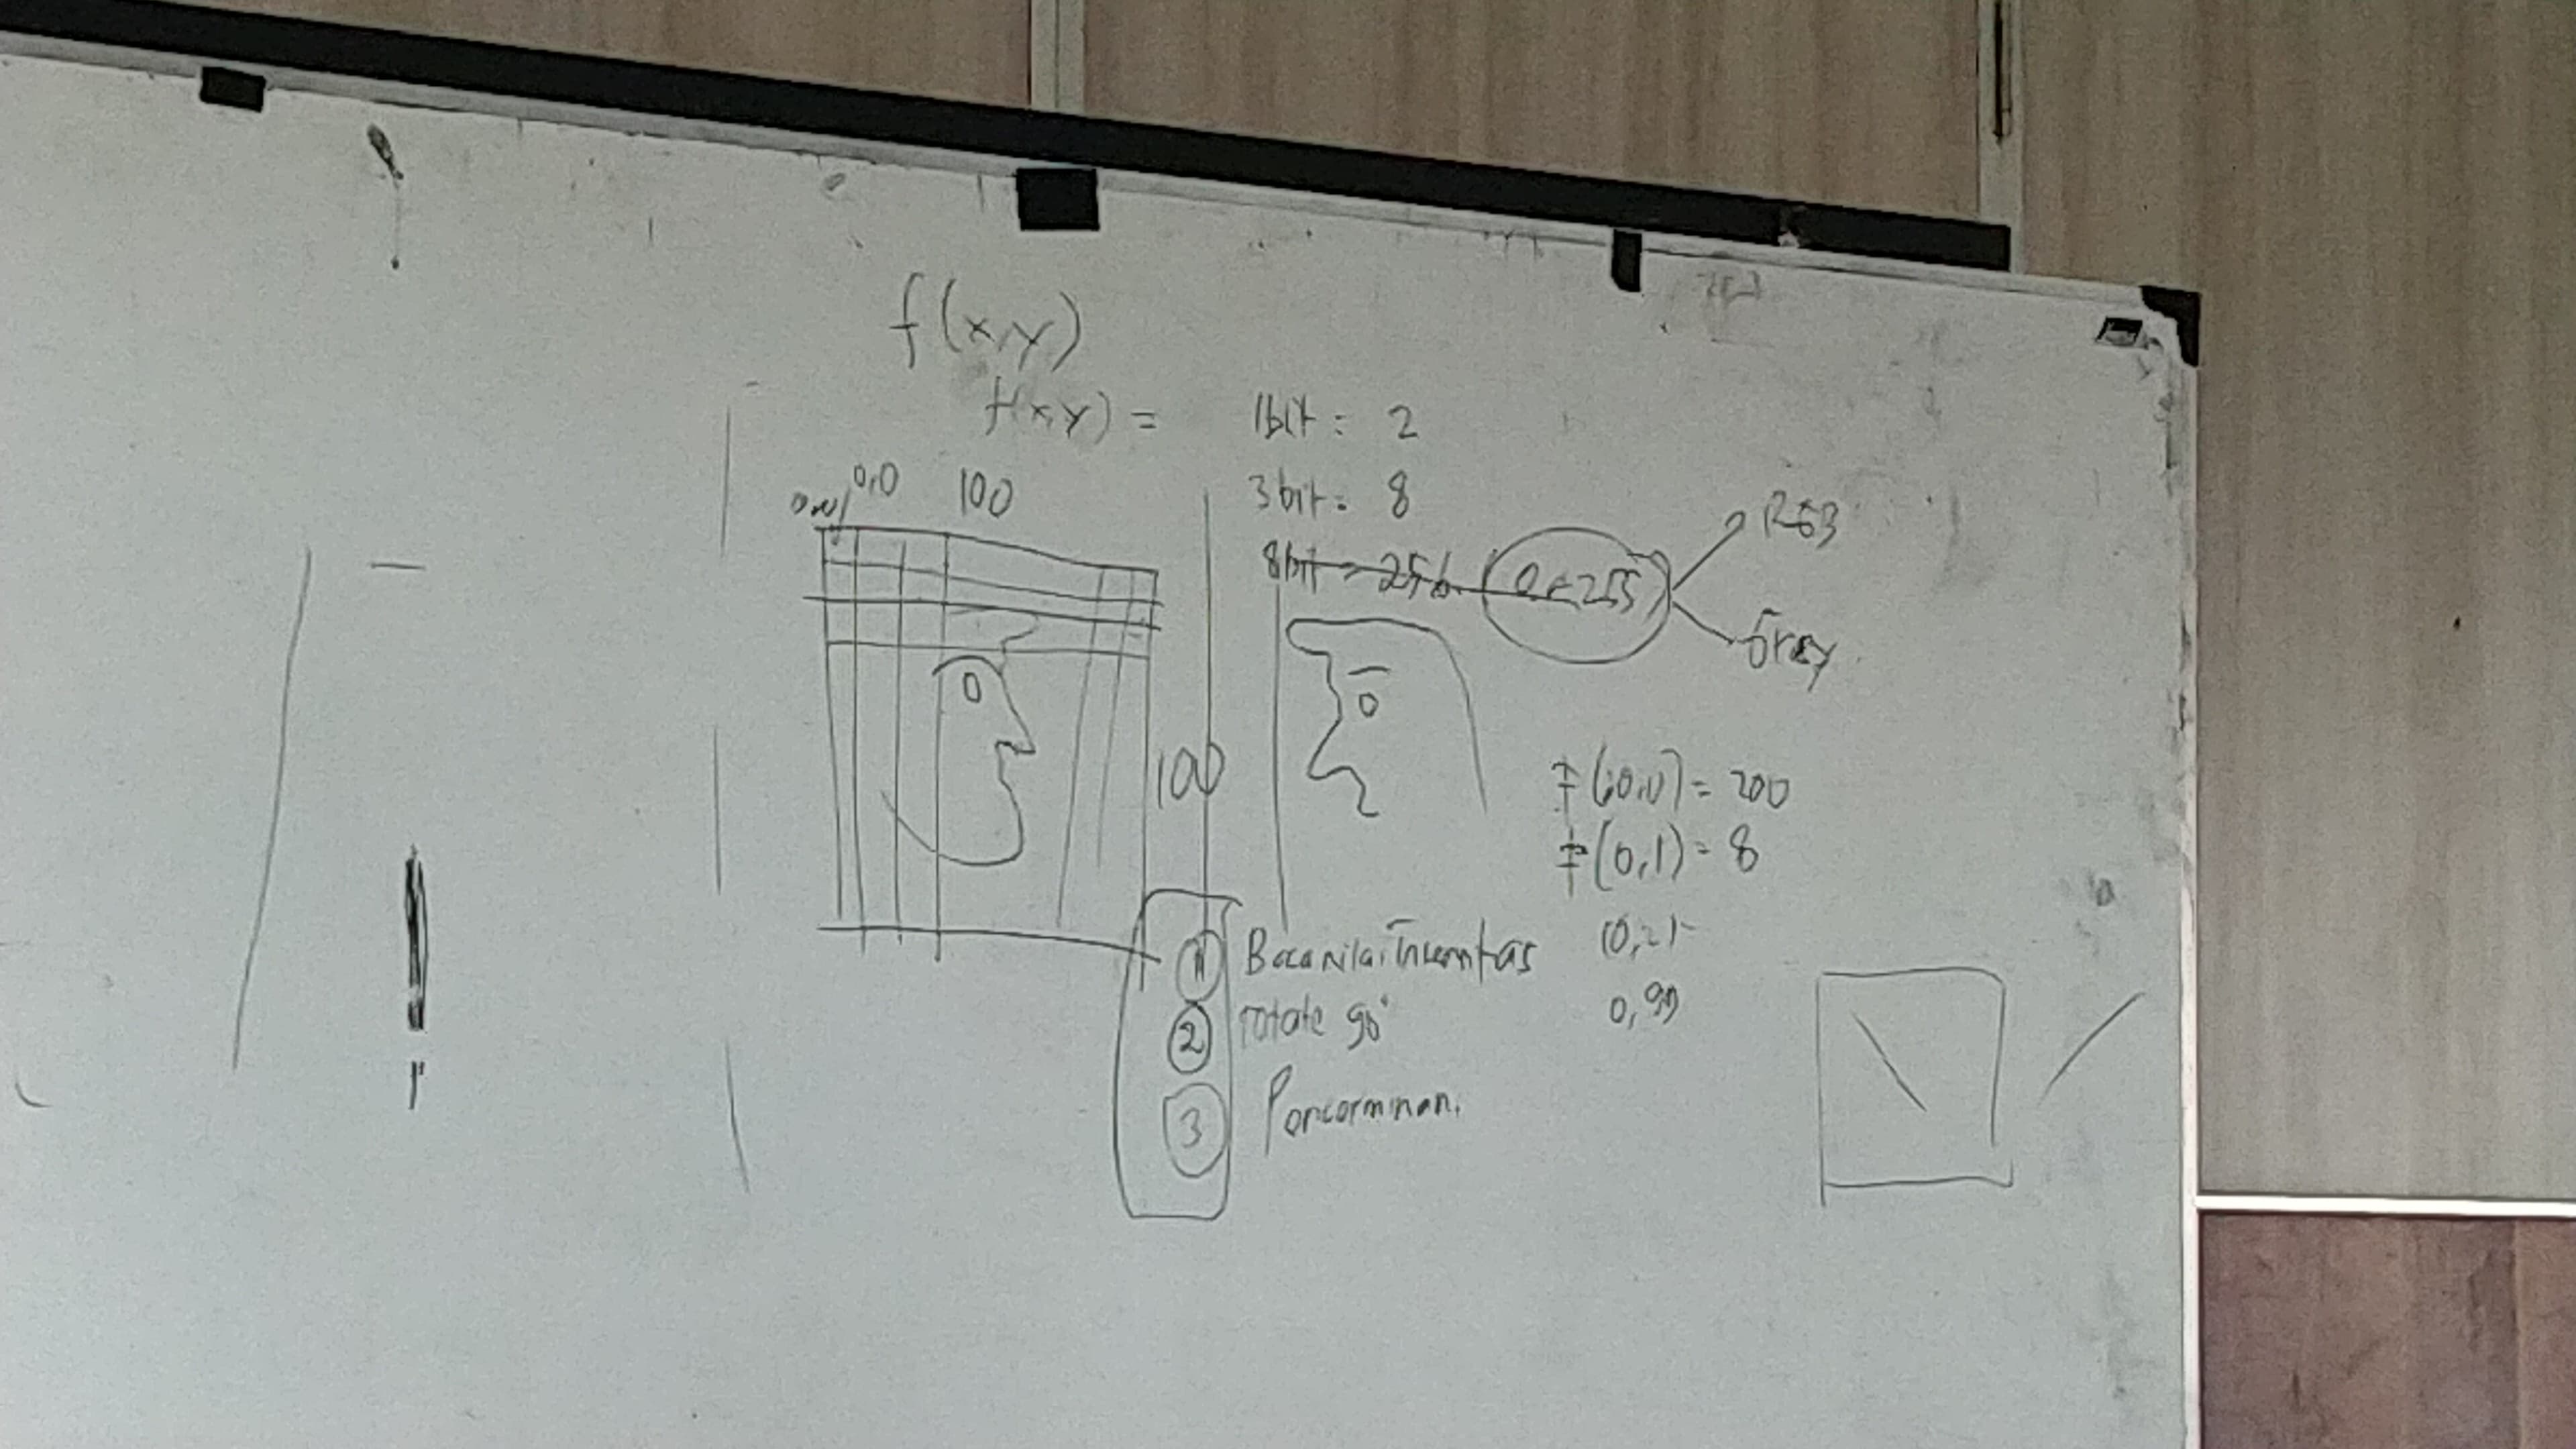 f(x,y)
f(x,y) =
1bit : 2
0,0 100
3bit = 8
8bit = 256 0 - 255
RGB
Gray
100
f(0,0) = 200
f(0,1) = 8
(0,2)
0,99
1 Baca nilai Intensitas
2 rotate 90°
3 Pencerminan.